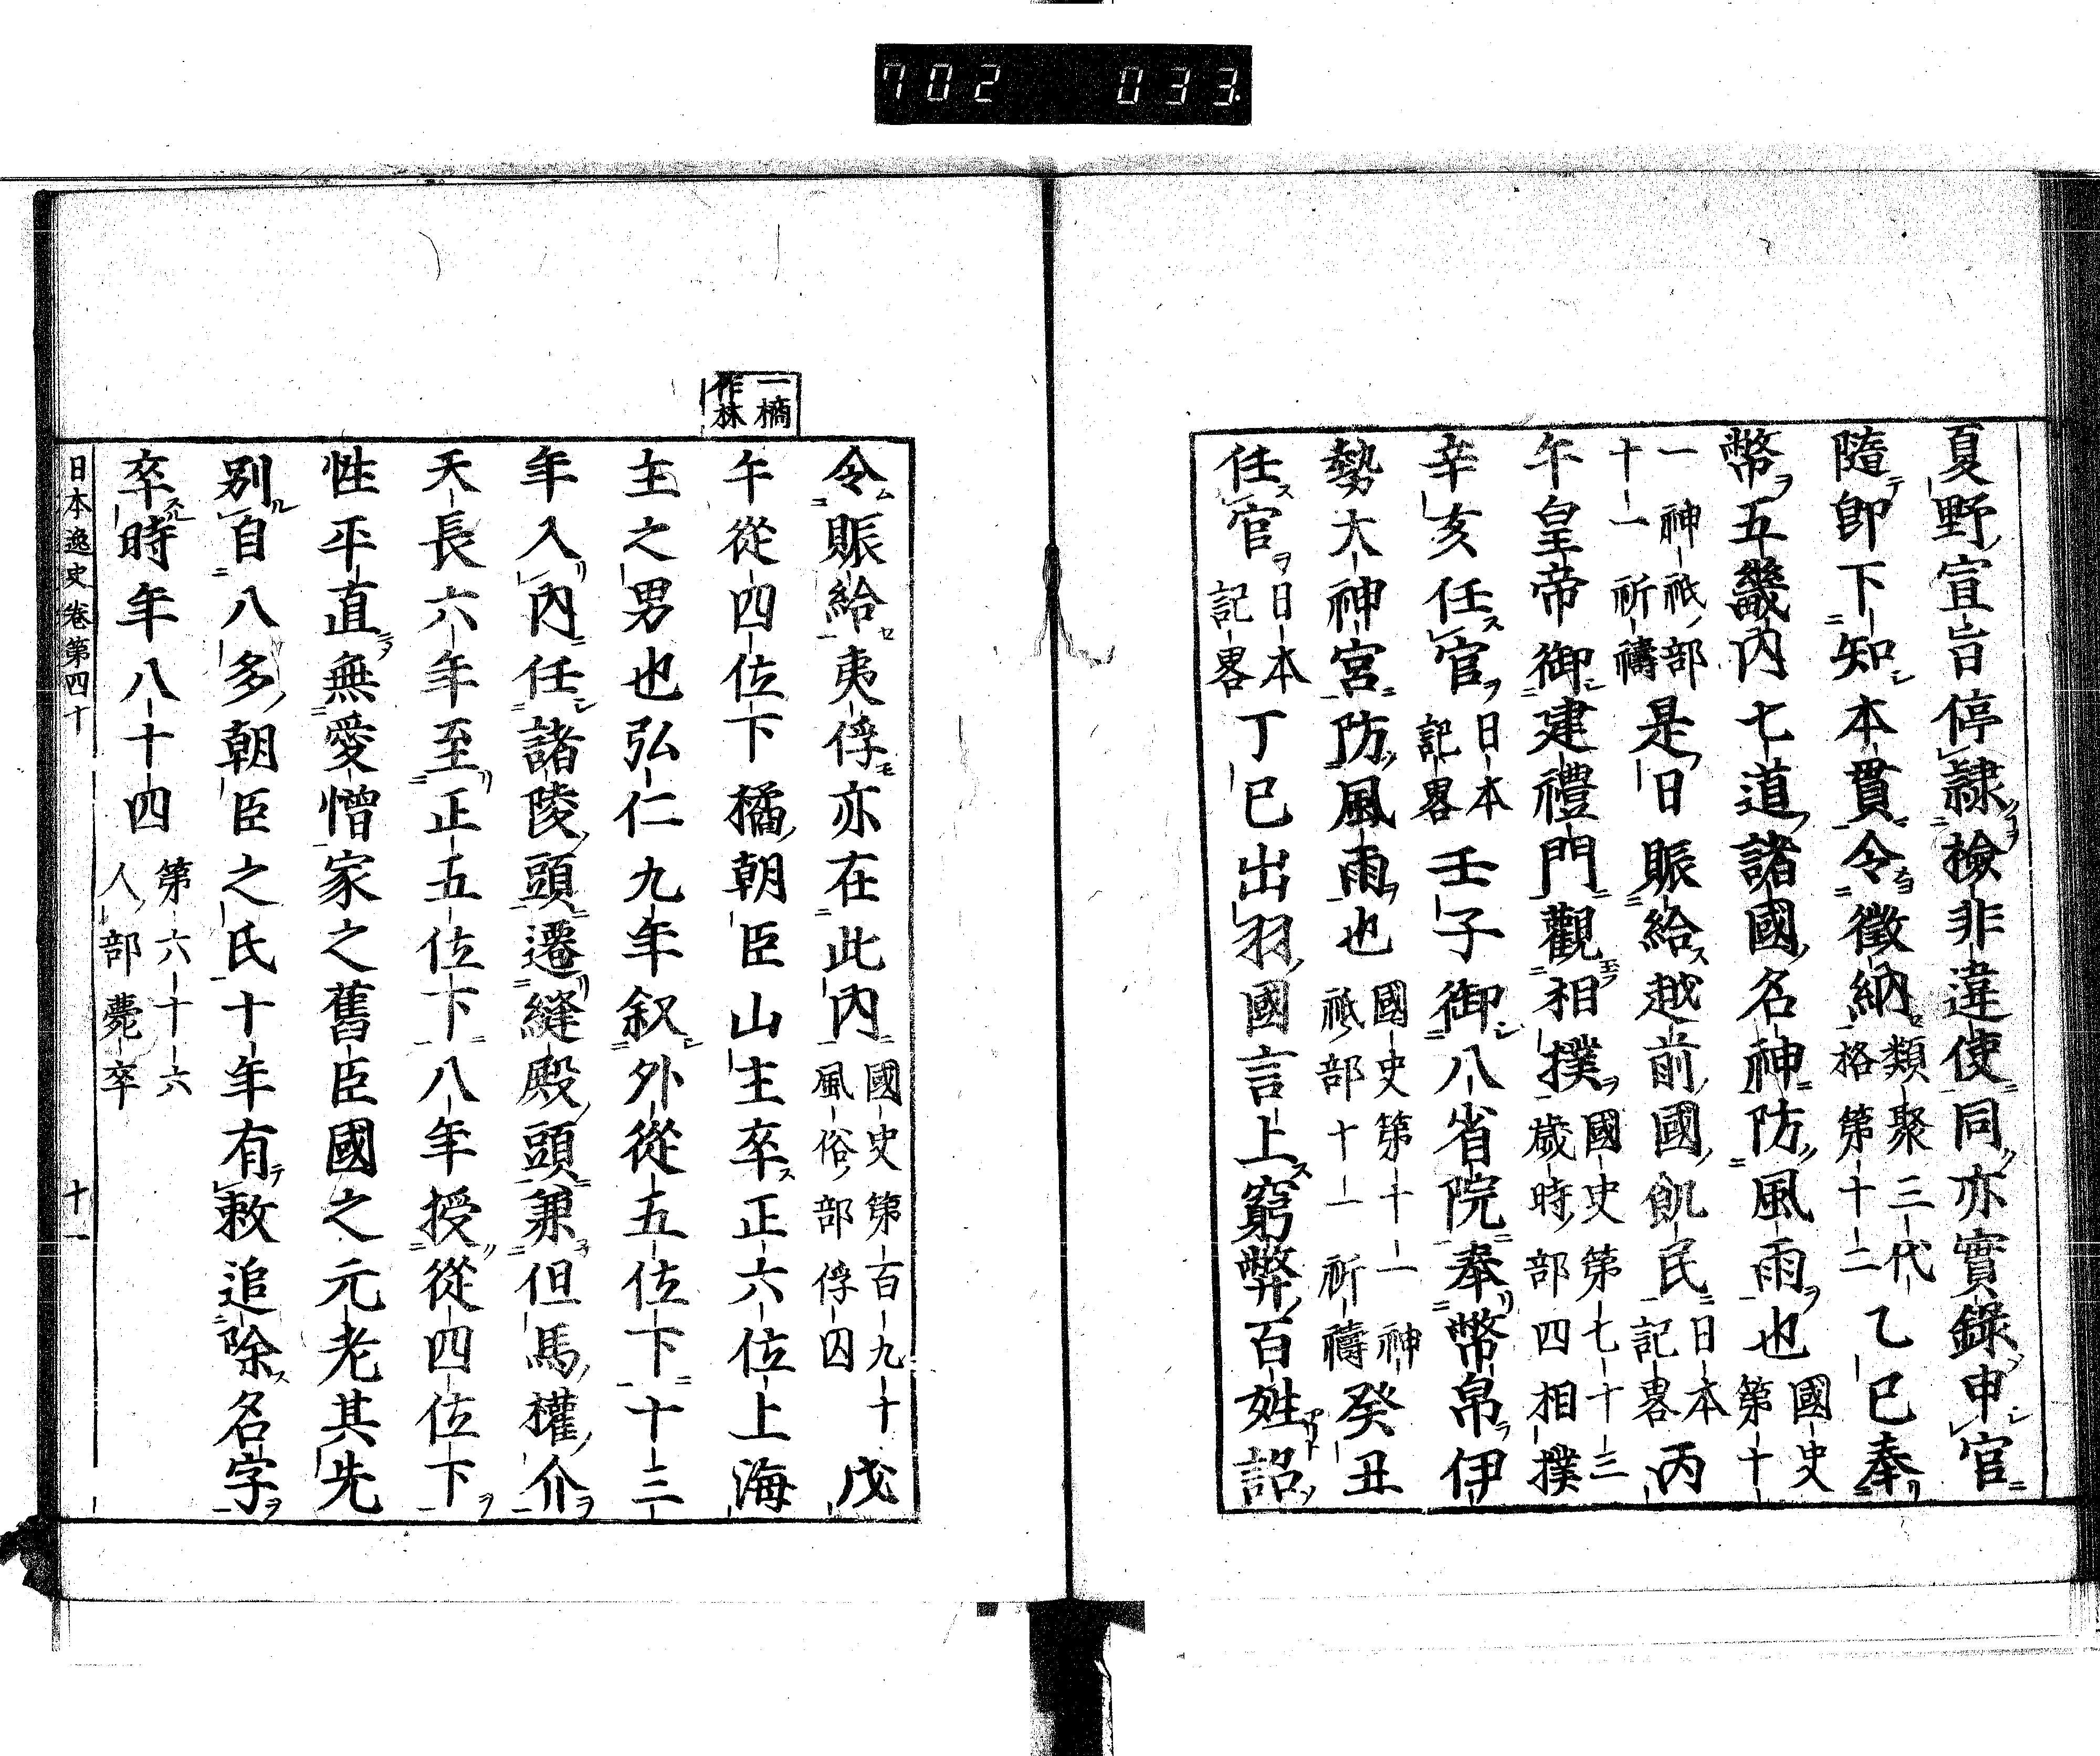 702 033
夏野宣旨停隷檢非違使同亦實錄申官
隨卽下知本貫令徵納類聚三代格第十二乙巳奉
幣五畿內七道諸國名神防風雨也國史第十
一神祇部十一祈禱是日賑給越前國飢民日本記畧丙
午皇帝御建禮門觀相撲國史第七十三歲時部四相撲
辛亥任官日本記畧壬子御八省院奉幣帛伊
勢大神宮防風雨也國史第十一神祇部十一祈禱癸丑
任官日本記畧丁巳出羽國言上窮弊百姓詔
一橘作林
令賑給夷俘亦在此內國史第百九十風俗部俘囚戊
午從四位下橘朝臣山主卒正六位上海
主之男也弘仁九年叙外從五位下十三
年入內任諸陵頭遷縫殿頭兼但馬權介
天長六年至正五位下八年授從四位下
性平直無愛憎家之舊臣國之元老其先
別自八多朝臣之氏十年有敕追除名字
卒時年八十四第六十六人部薨卒
日本逸史卷第四十 十一